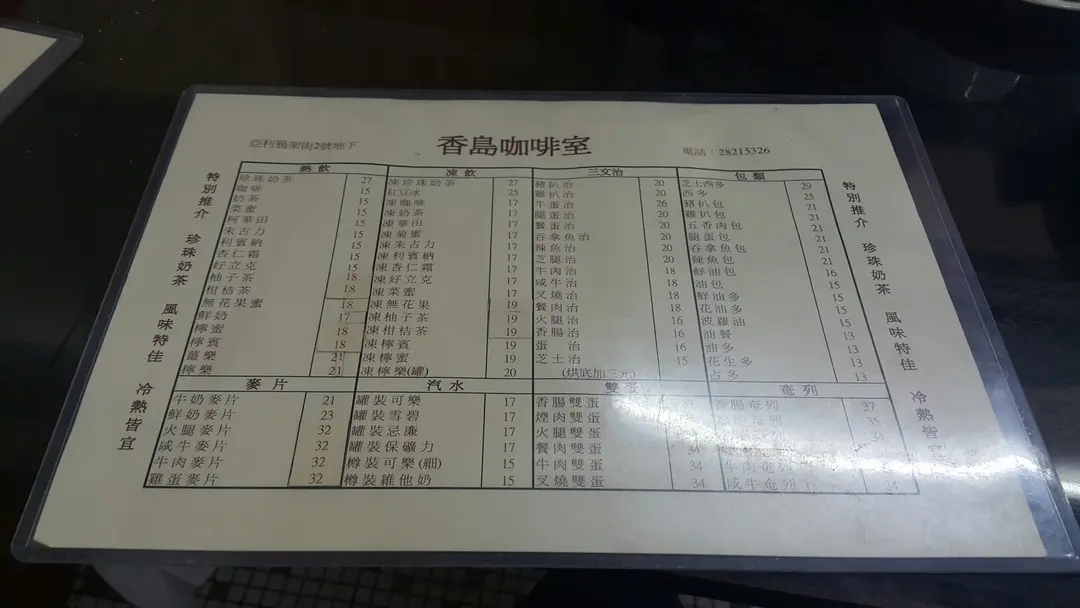 香島咖啡室
亞利鴉架街2號地下
電話：28215326
特別推介 珍珠奶茶 風味特佳 冷熱皆宜
熱飲
珍珠奶茶 27
咖啡 15
奶茶 15
菜蜜 15
柯華田 15
朱古力 15
利賓納 15
杏仁霜 15
好立克 15
柚子茶 18
柑桔茶 18
無花果蜜 18
鮮奶 17
檸蜜 18
檸賓 18
薑樂 21
檸樂 21
凍飲
凍珍珠奶茶 27
紅豆冰 25
凍咖啡 17
凍奶茶 17
凍華田 17
凍菊蜜 17
凍朱古力 17
凍利賓納 17
凍杏仁霜 17
凍好立克 17
凍菜蜜 17
凍無花果 19
凍柚子茶 19
凍柑桔茶 19
凍檸賓 19
凍檸蜜 19
凍檸樂(罐) 20
三文治
豬扒治 20
雞扒治 20
牛蛋治 26
腿蛋治 20
餐蛋治 20
吞拿魚治 20
辣魚治 20
芝腿治 20
牛肉治 18
咸牛治 18
叉燒治 18
餐肉治 18
火腿治 16
香腸治 16
蛋 治 16
芝士治 15
(烘底加三元)
包類
芝士西多 29
西多 25
豬扒包 21
雞扒包 21
五香肉包 21
腿蛋包 21
吞拿魚包 21
辣魚包 21
鮮油包 16
油包 15
鮮油多 15
花油多 15
波蘿油 15
油餐 13
油多 13
花生多 13
占多 13
麥片
牛奶麥片 21
鮮奶麥片 23
火腿麥片 32
咸牛麥片 32
牛肉麥片 32
雞蛋麥片 32
汽水
罐裝可樂 17
罐裝雪碧 17
罐裝忌廉 17
罐裝保礦力 17
樽裝可樂(細) 15
樽裝維他奶 15
雙蛋
香腸雙蛋
煙肉雙蛋
火腿雙蛋
餐肉雙蛋 34
牛肉雙蛋 34
叉燒雙蛋 34
奄列
香腸奄列 37
35
34
牛肉奄列
咸牛奄列 34
特別推介 珍珠奶茶 風味特佳 冷熱皆宜